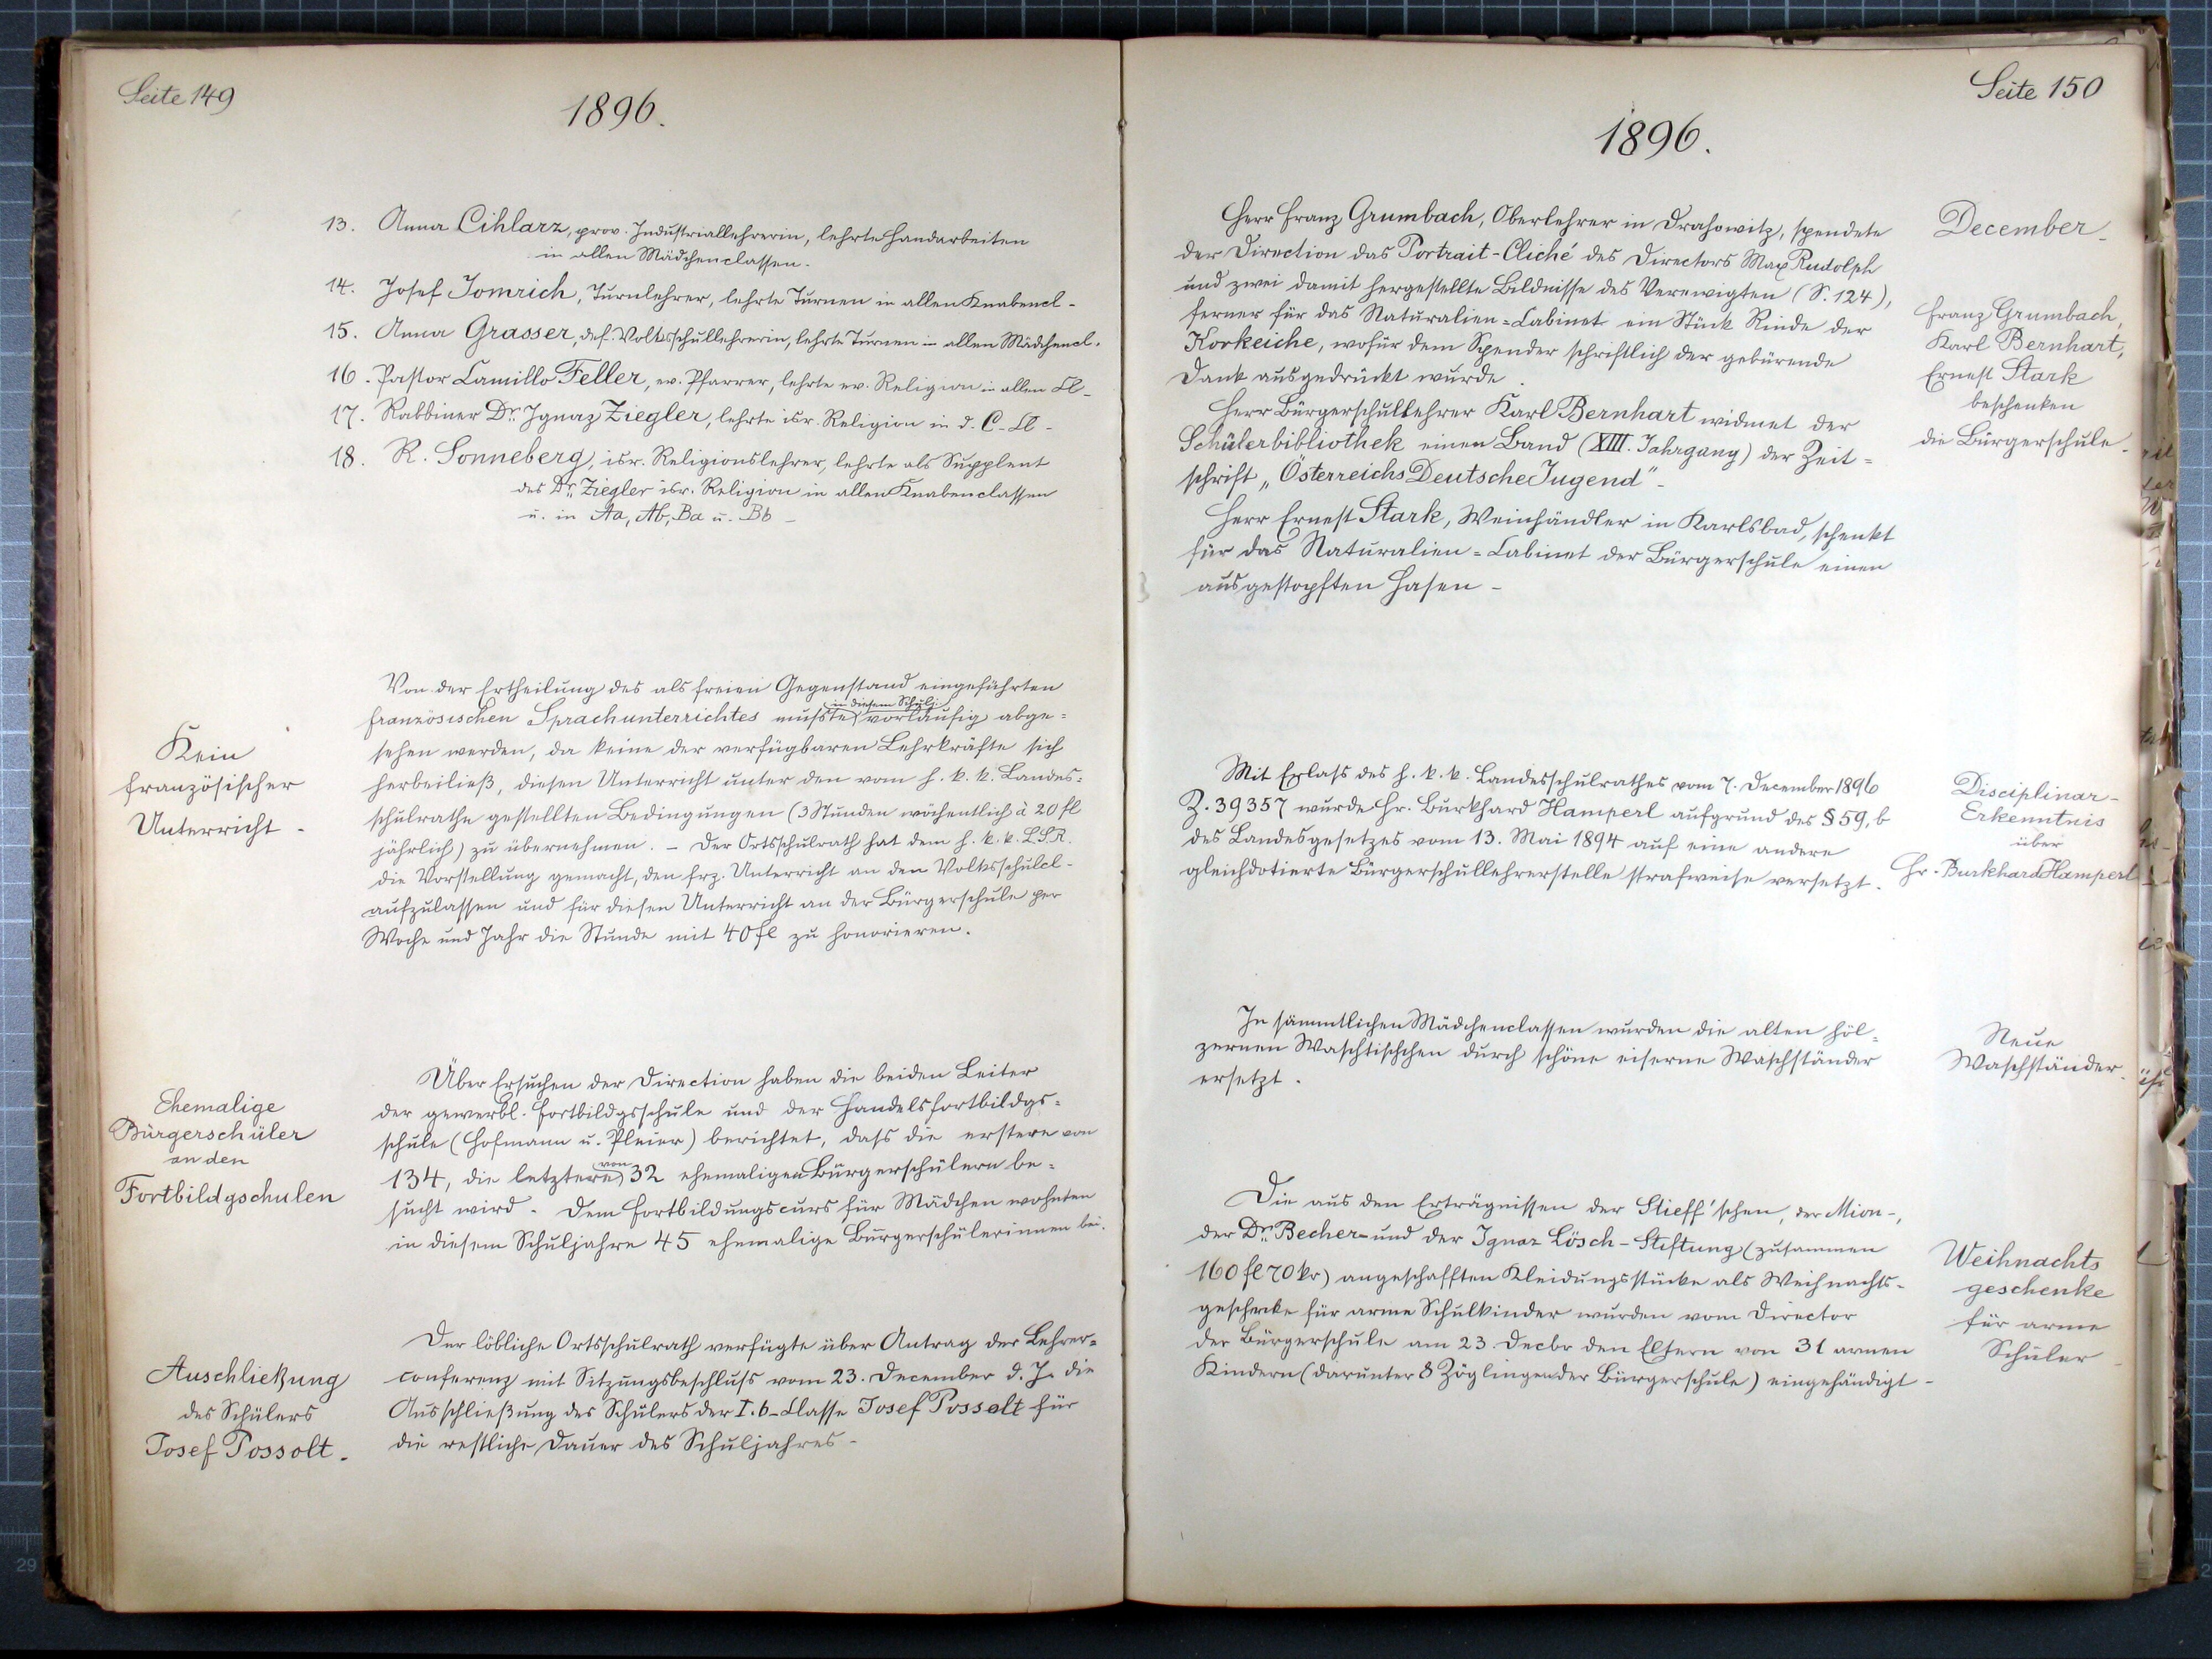 Seite 149
1896.
13. Anna Cihlarz, prov. Industriallehrerin, lehrte Handarbeiten
in allen Mädchenclassen.
14. Josef Tomrich, Turnlehrer, lehrte Turnen in allen Knabencl-
15. Anna Grasser, def. Volksschullehrerin, lehrte Turnen in allen Mädchencl.
16. Pastor Camillo Feller, ev. Pfarrer, lehrte ev. Religion in allen Cl-
17. Rabbiner Dr. Ignaz Ziegler, lehrte isr. Religion in d. C-Cl-
18. R. Sonneberg, isr. Religionslehrer, lehrte als Supplent
des Dr. Ziegler isr. Religion in allen Knabenclassen
u. in Aa, Ab, Ba u. Bb-
Kein
französischer
Unterricht-
Von der Ertheilung des als freien Gegenstand eingeführten
in diesem Schulj.
französischen Sprachunterrichtes mußte vorläufig abge=
sehen werden, da keine der verfügbaren Lehrkräfte sich
herbeiließ, diesen Unterricht unter den vom h. k. k. Landes=
schulrathe gestellten Bedingungen (3 Stunden wöchentlich à 20 fl
jährlich) zu übernehmen. - Der Ortsschulrath hat dem h. k. k. L.S.R.
die Vorstellung gemacht, den frz. Unterricht an den Volksschulcl-
aufzulassen und für diesen Unterricht an der Bürgerschule per
Woche und Jahr die Stunde mit 40 fl zu honorieren.
Ehemalige
Bürgerschüler
an den
Fortbildgschulen
Über Ersuchen der Direction haben die beiden Leiter
der gewerbl. Fortbildgsschule und der Handelsfortbildgs=
schule (Hofmann u. Pleier) berichtet, dass die erstere von
134, die letztere von 32 ehemaligen Bürgerschülern be=
sucht wird. Dem Fortbildungscurs für Mädchen wohnten
in diesem Schuljahre 45 ehemalige Bürgerschülerinnen bei.
Auschließung
des Schülers
Josef Possolt.
Der löbliche Ortsschulrath verfügte über Antrag der Lehrer=
conferenz mit Sitzungsbeschluss vom 23. December d. J. die
Ausschließung des Schülers der I. b-Classe Josef Posselt für
die restliche Dauer des Schuljahres-
Seite 150
1896.
Herr Franz Grumbach, Oberlehrer in Drahowitz, spendete
der Direction das Portrait-Cliché des Directors Max Rudolph
und zwei damit hergestellte Bildnisse des Verewigten (S. 124),
ferner für das Naturalien=Cabinet ein Stück Rinde der
Korkeiche, wofür dem Spender schriftlich der gebürende
Dank ausgedrückt wurde.
Herr Bürgerschullehrer Karl Bernhart widmet der
Schülerbibliothek einen Band (XIII. Jahrgang) der Zeit=
schrift „Österreichs Deutsche Jugend"-
Herr Ernest Stark, Weinhändler in Karlsbad, schenkt
für das Naturalien=Cabinet der Bürgerschule einen
ausgestopften Hasen-
December-
Franz Grumbach,
Karl Bernhart,
Ernest Stark
beschenken
die Bürgerschule-
Mit Erlass des h. k. k. Landesschulrathes vom 7. December 1896
Z. 39357 wurde Hr. Burkhard Hamperl aufgrund des § 59, b
des Landesgesetzes vom 13. Mai 1894 auf eine andere
gleichdotierte Bürgerschullehrerstelle strafweise versetzt.
Disciplinar-
Erkenntnis
über
Hr. Burkhard Hamperl
In sämmtlichen Mädchenclassen wurden die alten höl=
zernen Waschtischchen durch schöne eiserne Waschständer
ersetzt.
Neue
Waschständer.
Die aus den Erträgnissen der Stieff'schen, der Mion-,
der Dr. Becher- und der Ignaz Lösch-Stiftung (zusammen
160 fl 70 kr) angeschafften Kleidungsstücke als Weihnachts-
geschenke für arme Schulkinder wurden vom Director
der Bürgerschule am 23. Decbr den Eltern von 31 armen
Kindern (darunter 8 Zöglingen der Bürgerschule) eingehändigt-
Weihnachts
geschenke
für arme
Schüler-